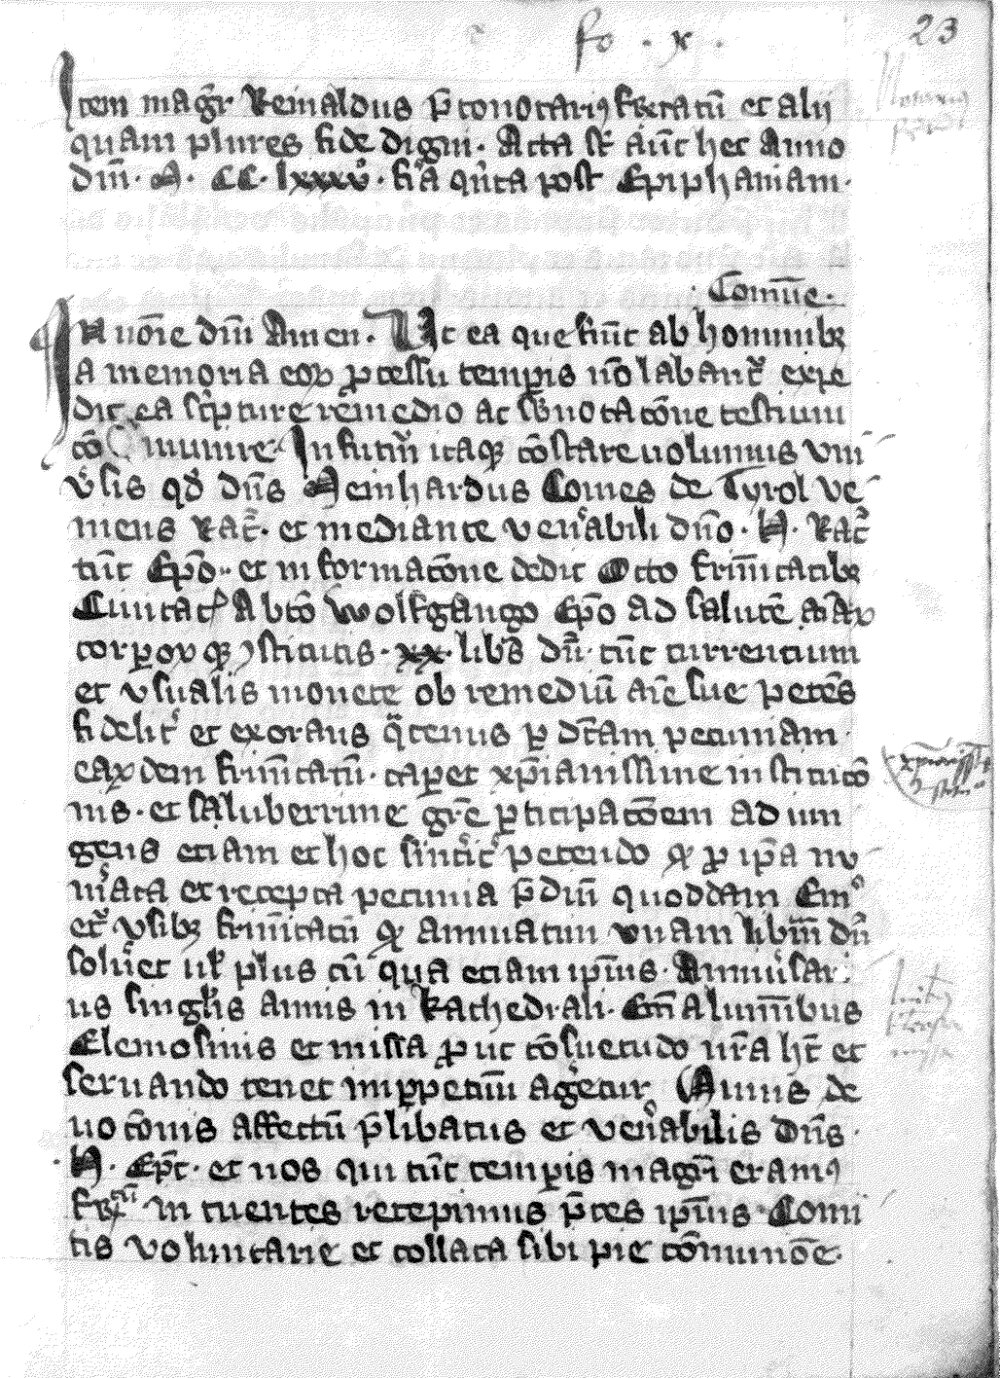 fo . x .
23
Item mag̃r Reinaldus p̃tonotariꝰ fr̃atrũ et alii
quam plures fide digni. Acta st̃ aũt hec Anno
dm̃. M. CC. lxxxv°. fr̃a qⁱnta post Epiphaniam.
. Comũe .
In noĩe dm̃ Amen. Ut ea que fiũt ab hominibꝫ
a memoria eoꝝ ꝓcessu temꝑis nõ labant᷑ expe
dit ea scⁱpture remedio ac sb̃notatõne testium
cõmunire. In futur̃ itaqꝫ cõstare volumus vni
v̾sis qd̃ dñs Meinhardus Comes de Tyrol ve
niens Rat̃. et mediante ven̾abili dño. H. Rat̃
tũc Epõ.. et informatõne dedit Otto frĩnitatibꝫ
Civitat̃ Abtõ Wolfgango Epõ ad salutẽ aĩaꝝ
corꝑoꝝqꝫ ꝯstitutis. xx. libr̃s dñ. tũc currentium
et usualis monete ob remediũ aĩe sue petẽs
fidelit̾ et exorans q̃tenus ꝑ dc̃am pecuniam.
eaꝝdem frĩnitatũ. caperet xp̃ianissime institutõ
nis. et saluberrime gr̃e ꝑticipatõem ad iun
gens etiam et hoc sinc̾it̾ petendo qꝫ ꝓ ip̃a nu
m̾ata et recepta pecunia p̃diũ quoddam Em̾
et᷑ usibꝫ frĩnitatũ qꝫ annuatim unam libr̃m dñ
solu̾et ul̃ plus cũ qua etiam ip̃ius. Anniu̾sari
us singl̃is annis in kathedrali. Em̃ aluminibus
Elemosinis et missa ꝓut cõsuetudo nr̃a ht̃ et
servando tenet inꝑpetuũ agẽtur. Huius de
votõnis affectũ p̃libatus et ven̾abilis dñs.
. H. Epc̃. et nos qui tũc temꝑis magr̃i eramꝰ
fr̃atrũ intuentes recepimus p̃ces ip̃ius. Comi
tis voluntarie et collata sibi pie cõmunioẽ.